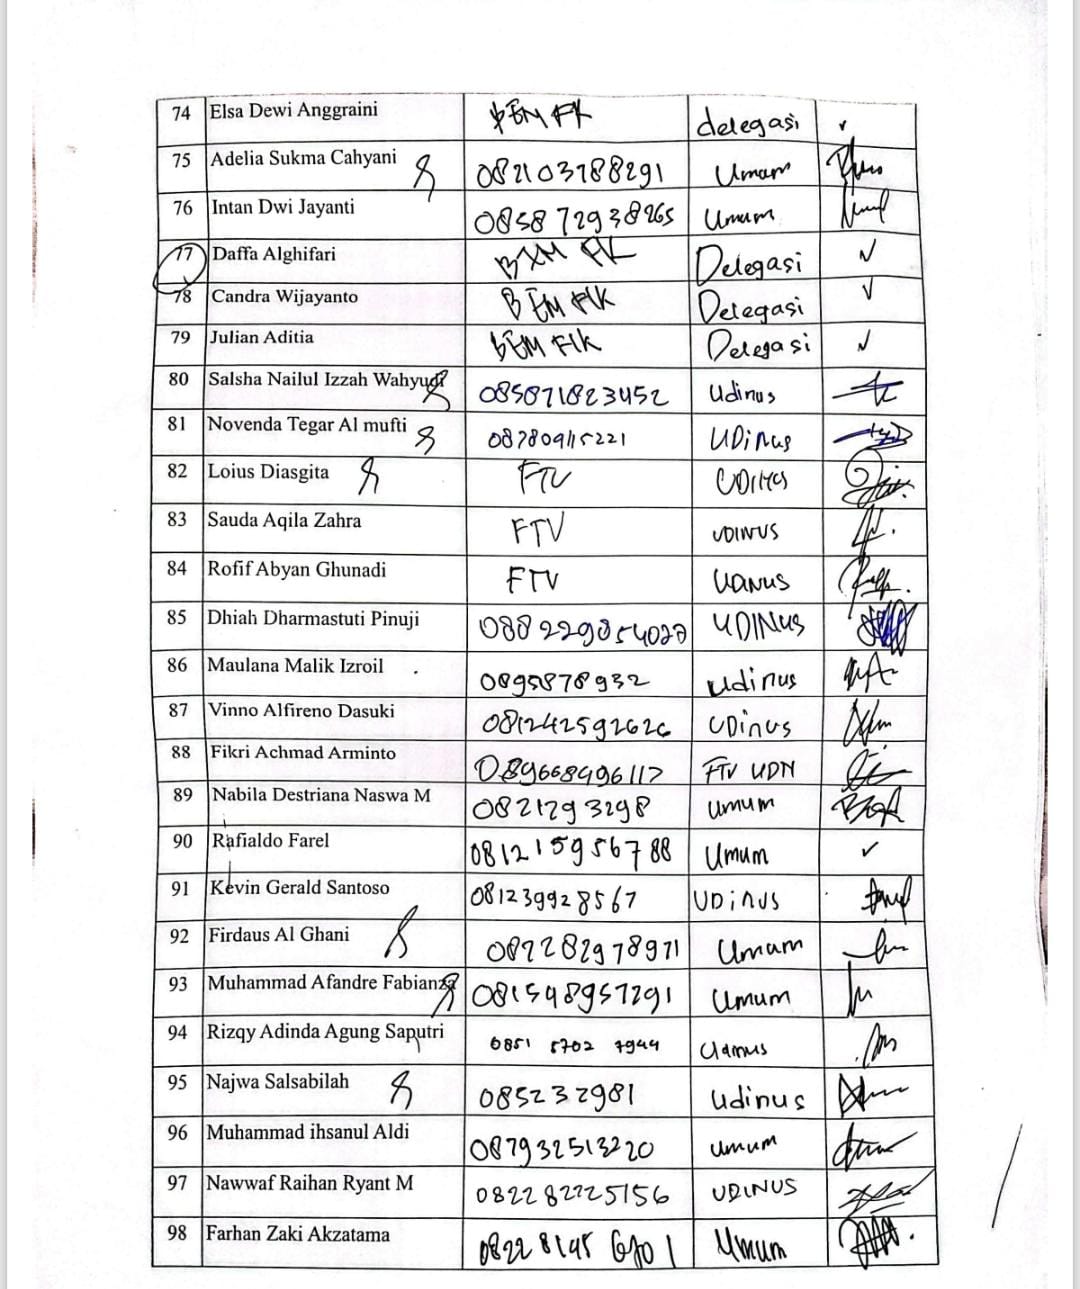 74 Elsa Dewi Anggraini BEM FK delegasi
75 Adelia Sukma Cahyani 082103788291 Umum
76 Intan Dwi Jayanti 085872938265 Umum
77 Daffa Alghifari BEM FK Delegasi
78 Candra Wijayanto BEM FIK Delegasi
79 Julian Aditia BEM FIK Delegasi
80 Salsha Nailul Izzah Wahyudi 085871823452 Udinus
81 Novenda Tegar Al mufti UDinus
82 Loius Diasgita FTV
83 Sauda Aqila Zahra FTV UDINUS
84 Rofif Abyan Ghunadi FTV
85 Dhiah Dharmastuti Pinuji UDINUS
86 Maulana Malik Izroil 0895878932 udinus
87 Vinno Alfireno Dasuki 081242592626 UDinus
88 Fikri Achmad Arminto 089668496117 FTV UDN
89 Nabila Destriana Naswa M 0821293298 umum
90 Rafialdo Farel 081215956788 Umum
91 Kevin Gerald Santoso 081239928567 UDinus
92 Firdaus Al Ghani 087282978971 Umum
93 Muhammad Afandre Fabianza 081548957291 Umum
94 Rizqy Adinda Agung Saputri 0851 5702 7944
95 Najwa Salsabilah 085232981 Udinus
96 Muhammad ihsanul Aldi 087932513220 umum
97 Nawwaf Raihan Ryant M 082282225156 UDINUS
98 Farhan Zaki Akzatama Umum